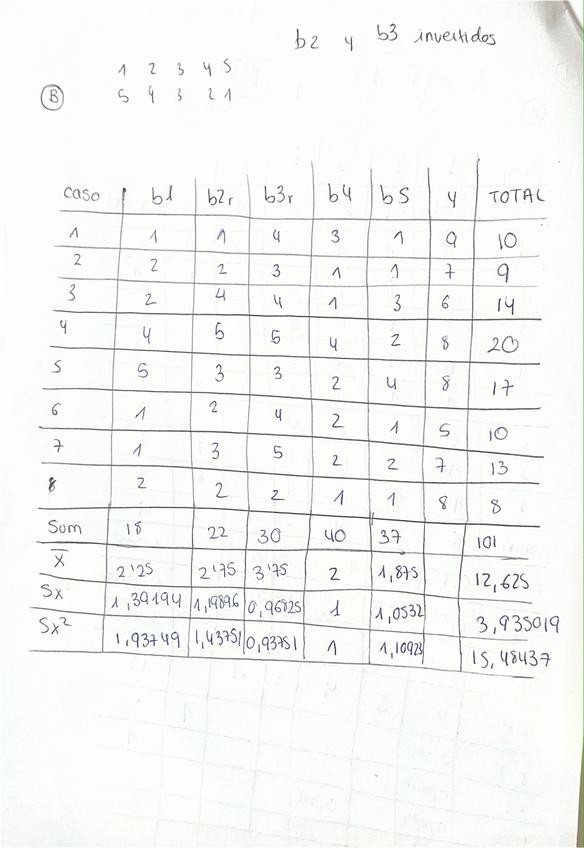 b2 y b3 invertidos
1 2 3 4 5
B 5 4 3 2 1
caso b1 b2r b3r b4 b5 y TOTAL
1 1 1 4 3 1 9 10
2 2 2 3 1 1 7 9
3 2 4 4 1 3 6 14
4 4 5 5 4 2 8 20
5 5 3 3 2 4 8 17
6 1 2 4 2 1 5 10
7 1 3 5 2 2 7 13
8 2 2 2 1 1 8 8
Sum 18 22 30 40 37 101
X̅ 2'25 2'75 3'75 2 1,875 12,625
Sx 1,39194 1,19896 0,96825 1 1,0532 3,935019
Sx² 1,93749 1,43751 0,93751 1 1,10923 15,48437